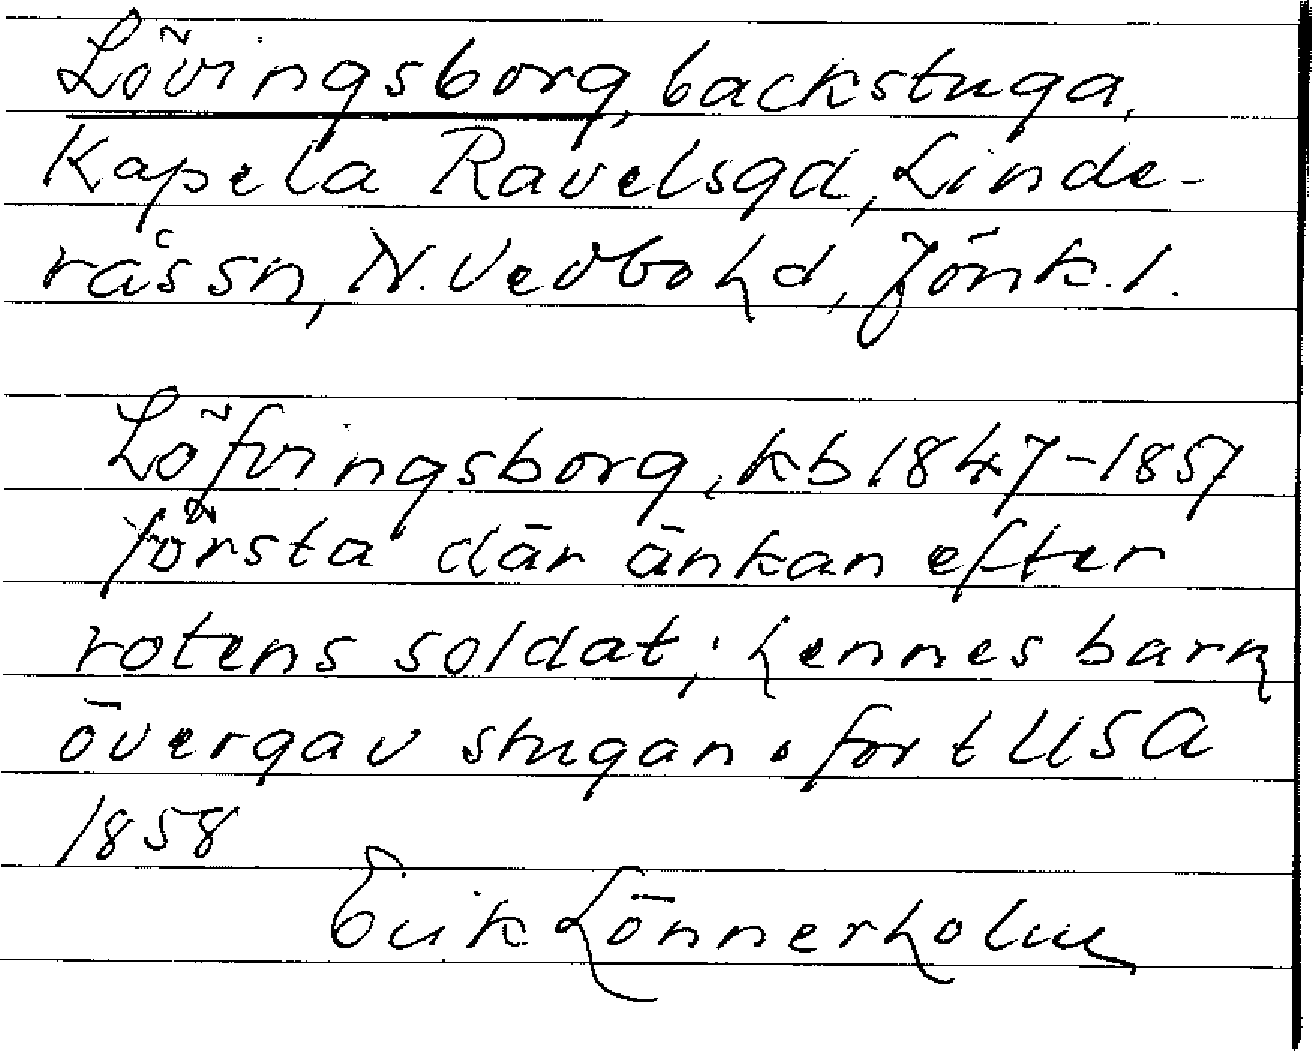 Lövingsborg, backstuga,
Kapela Ravelsgd, Linde-
rås sn, N. Vedbo hd, Jönk. l.
Löfvingsborg, kb 1847-1857
första där änkan efter
rotens soldat; hennes barn
övergav stugan o for t USA
1858
Erik Lönnerholm